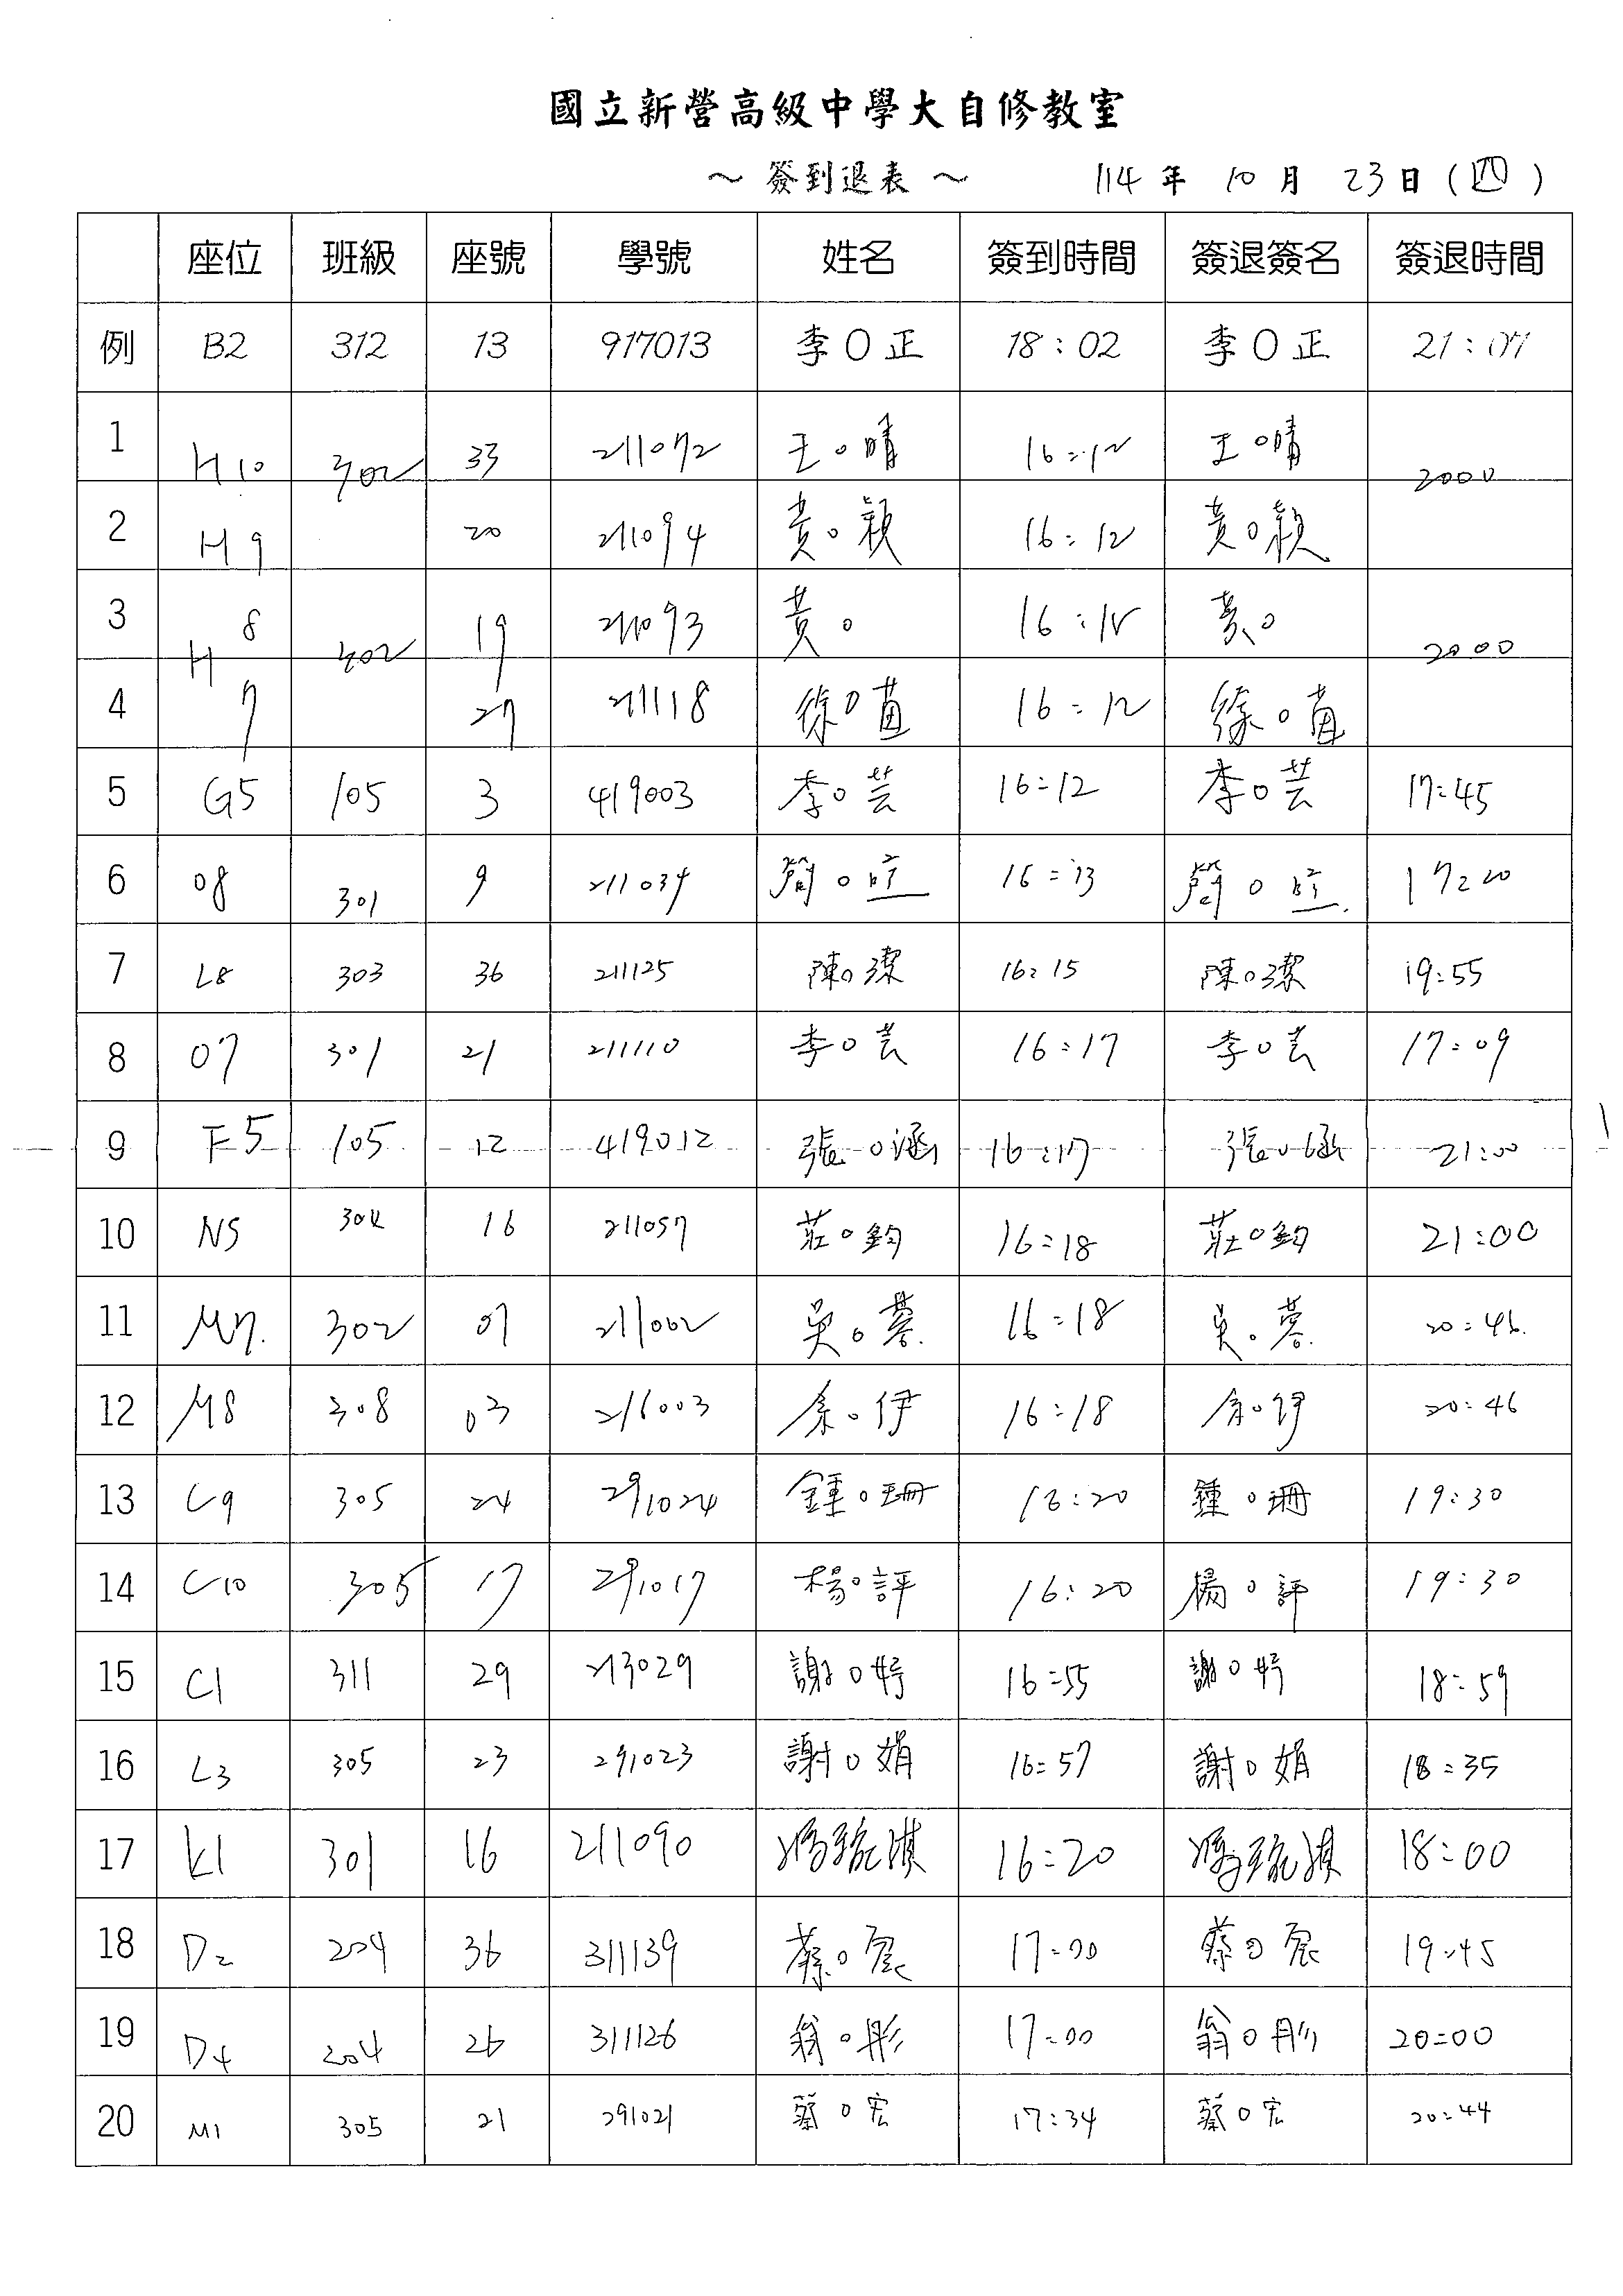 國立新營高級中學大自修教室
～ 簽到退表 ～ 114 年 10 月 23 日 (四)
座位 班級 座號 學號 姓名 簽到時間 簽退簽名 簽退時間
例 B2 312 13 917013 李O正 18:02 李O正 21:07
1 H10 302 33 211072 王O晴 16:12 王O晴 2000
2 H9 20 211094 黃O穎 16:12 黃O穎
3 H8 302 19 211093 黃O 16:12 黃O 2000
4 7 27 211118 徐O萱 16:12 徐O萱
5 G5 105 3 419003 李O芸 16:12 李O芸 17:45
6 O8 301 9 211034 簡O 16:13 簡O 17:20
7 L8 303 36 211125 陳O潔 16:15 陳O潔 19:55
8 O7 301 21 211110 李O芸 16:17 李O芸 17:09
9 F5 105 12 419012 張O涵 16:17 張O涵 21:00
10 N5 304 16 211057 莊O鈞 16:18 莊O鈞 21:00
11 M7. 302 07 211002 吳O蓉. 16:18 吳O蓉. 20:46.
12 M8 308 03 216003 余O伊 16:18 余O伊 20:46
13 C9 305 24 291024 鍾O珊 16:20 鍾O珊 19:30
14 C10 305 17 291017 楊O評 16:20 楊O評 19:30
15 C1 311 29 213029 謝O妤 16:55 謝O妤 18:59
16 L3 305 23 291023 謝O娟 16:57 謝O娟 18:35
17 K1 301 16 211090 馮琬淇 16:20 馮琬淇 18:00
18 D2 204 36 311139 蔡O宸 17:00 蔡O宸 19:45
19 D4 204 26 311126 翁O彤 17:00 翁O彤 20:00
20 M1 305 21 291021 蔡O宏 17:34 蔡O宏 20:44